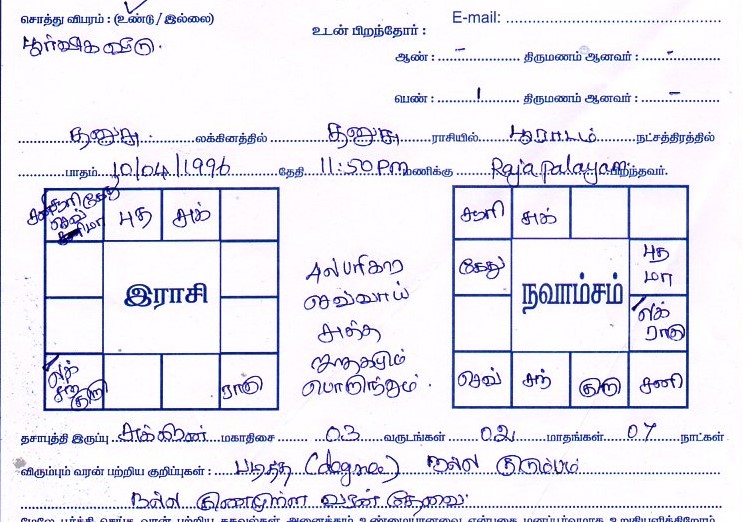 சொத்து விபரம் : (உண்டு / இல்லை)
பூர்வீக வீடு.
E-mail:
உடன் பிறந்தோர் :
ஆண் : – திருமணம் ஆனவர் : –
பெண் : 1 திருமணம் ஆனவர் : –
தனுசு லக்கினத்தில் தனுசு ராசியில் பூராடம் நட்சத்திரத்தில்
பாதம் 10/04/1996 தேதி 11:50 PM மணிக்கு Rajapalayam பிறந்தவர்.
செவ்
புத
சுக்
இராசி
லக்
சந்
குரு
ராகு
பரிகார
செவ்வாய்
சுத்த
ஜாதகமும்
பொருந்தும்.
சூரி
சுக்
கேது
புத
மா
நவாம்சம்
லக்
ராகு
செவ்
சந்
குரு
சனி
தசாபுத்தி இருப்பு சுக்கிரன் மகாதிசை 03 வருடங்கள் 02 மாதங்கள் 07 நாட்கள்
விரும்பும் வரன் பற்றிய குறிப்புகள் : படித்த (degree) நல்ல குடும்பம்
நல்ல குணமுள்ள வரன் தேவை